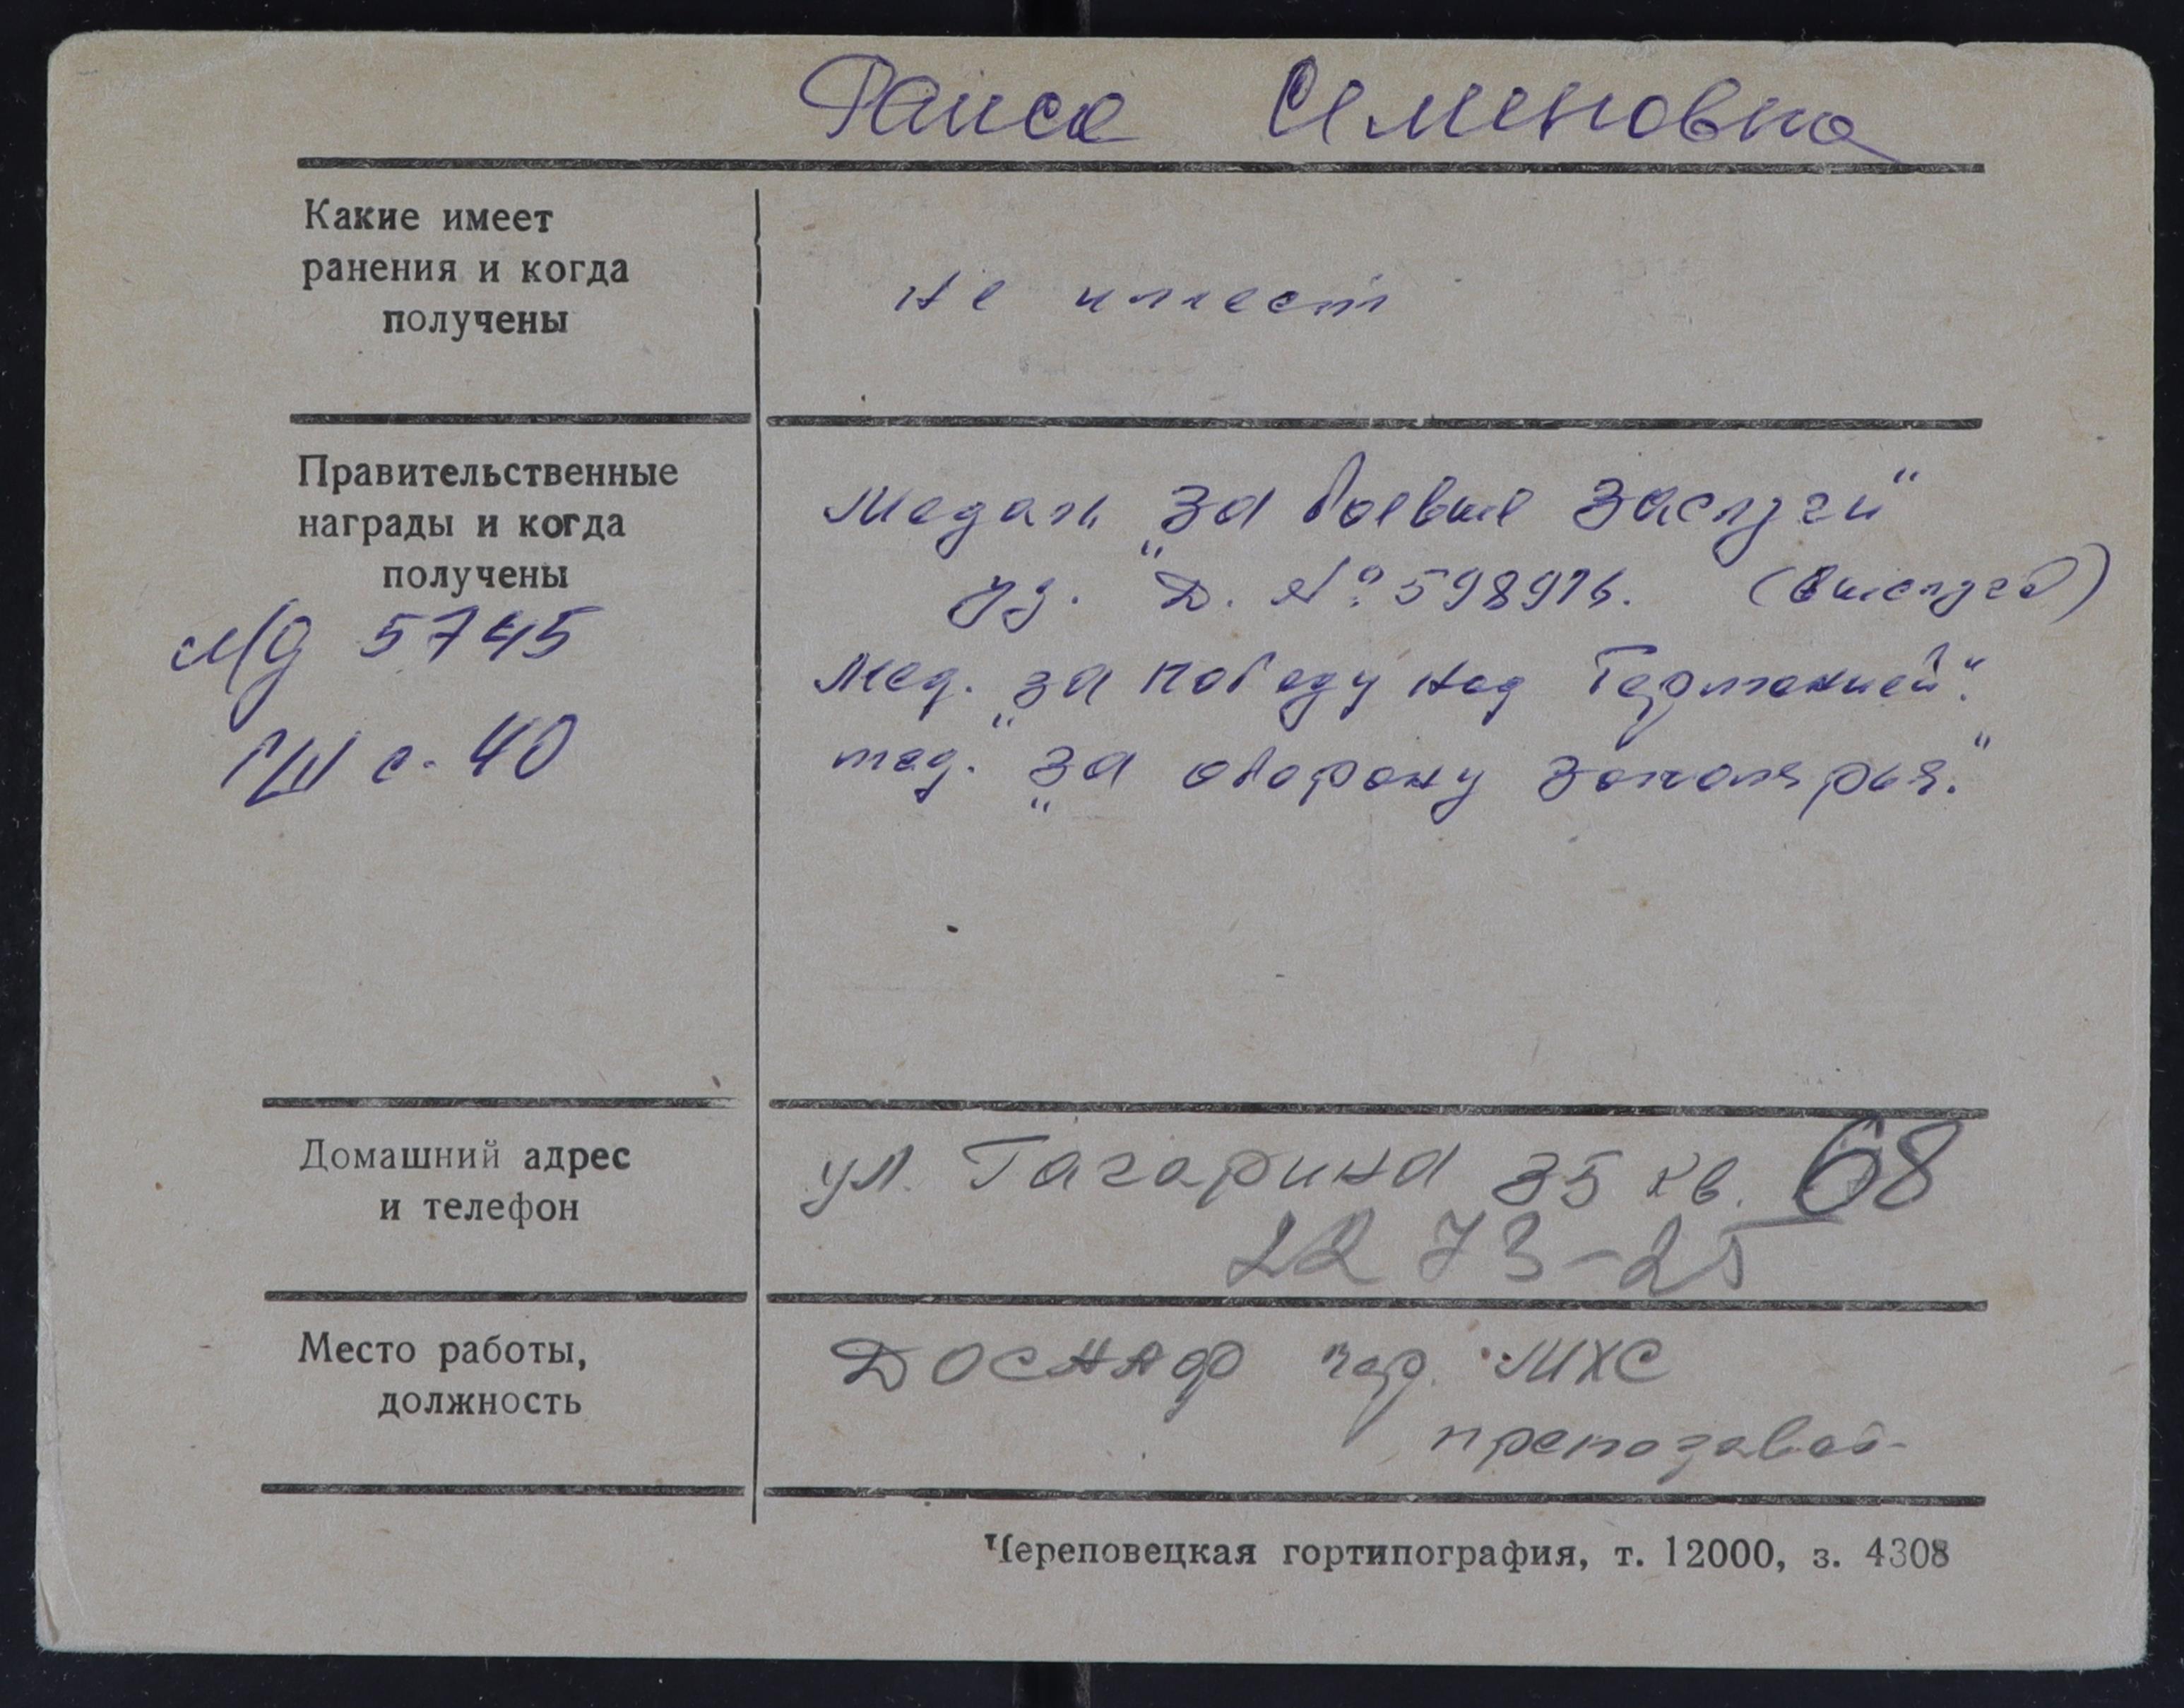 Раиса Семеновна
Какие имеет
ранения и когда
получены
не имеет
Правительственные
награды и когда
получены
МД 5745
ГШ с. 40
Медаль „За боевые заслуги“
уд. Д. № 598976. (выслуга)
Мед. „За победу над Германией“.
мед. „За оборону Заполярья.“
Домашний адрес
и телефон
ул. Гагарина 35 кв. 68
22 73-25
Место работы,
должность
ДОСААФ МХС
преподават-
Череповецкая гортипография, т. 12000, з. 4308